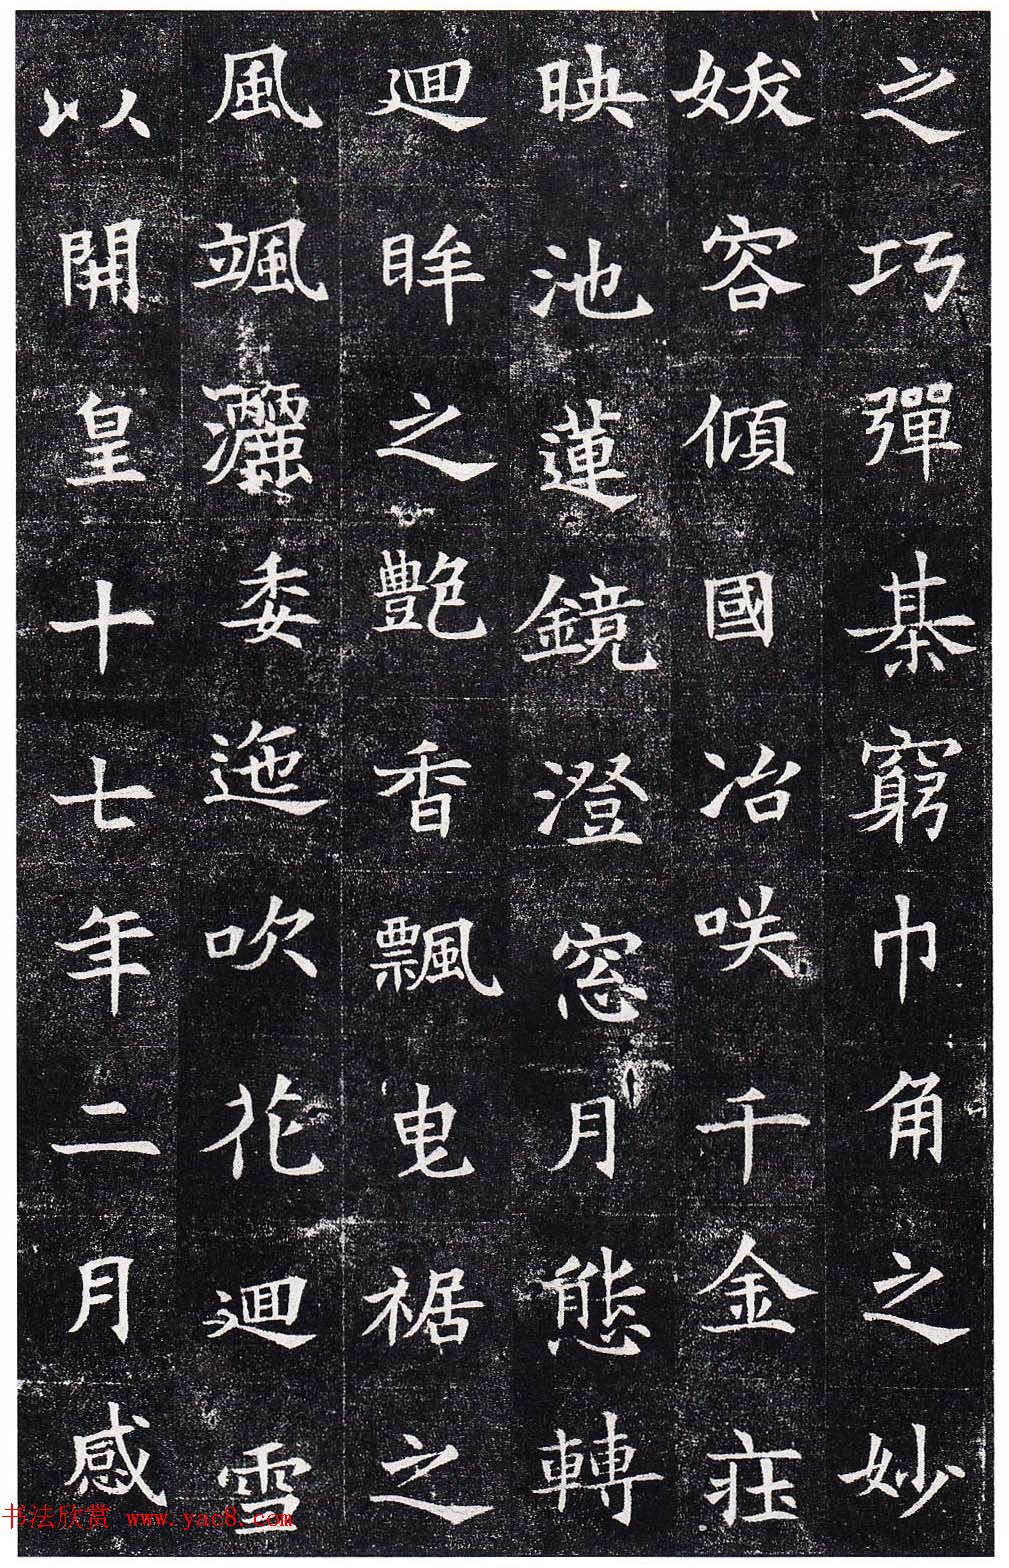 之巧彈棊窮巾角之妙
妭容傾國冶咲千金莊
映池蓮鏡澄窓月態轉
迴眸之艷香飄曳裾之
風颯灑委迤吹花迴雪
以開皇十七年二月感
书法欣赏 www.yac8.com